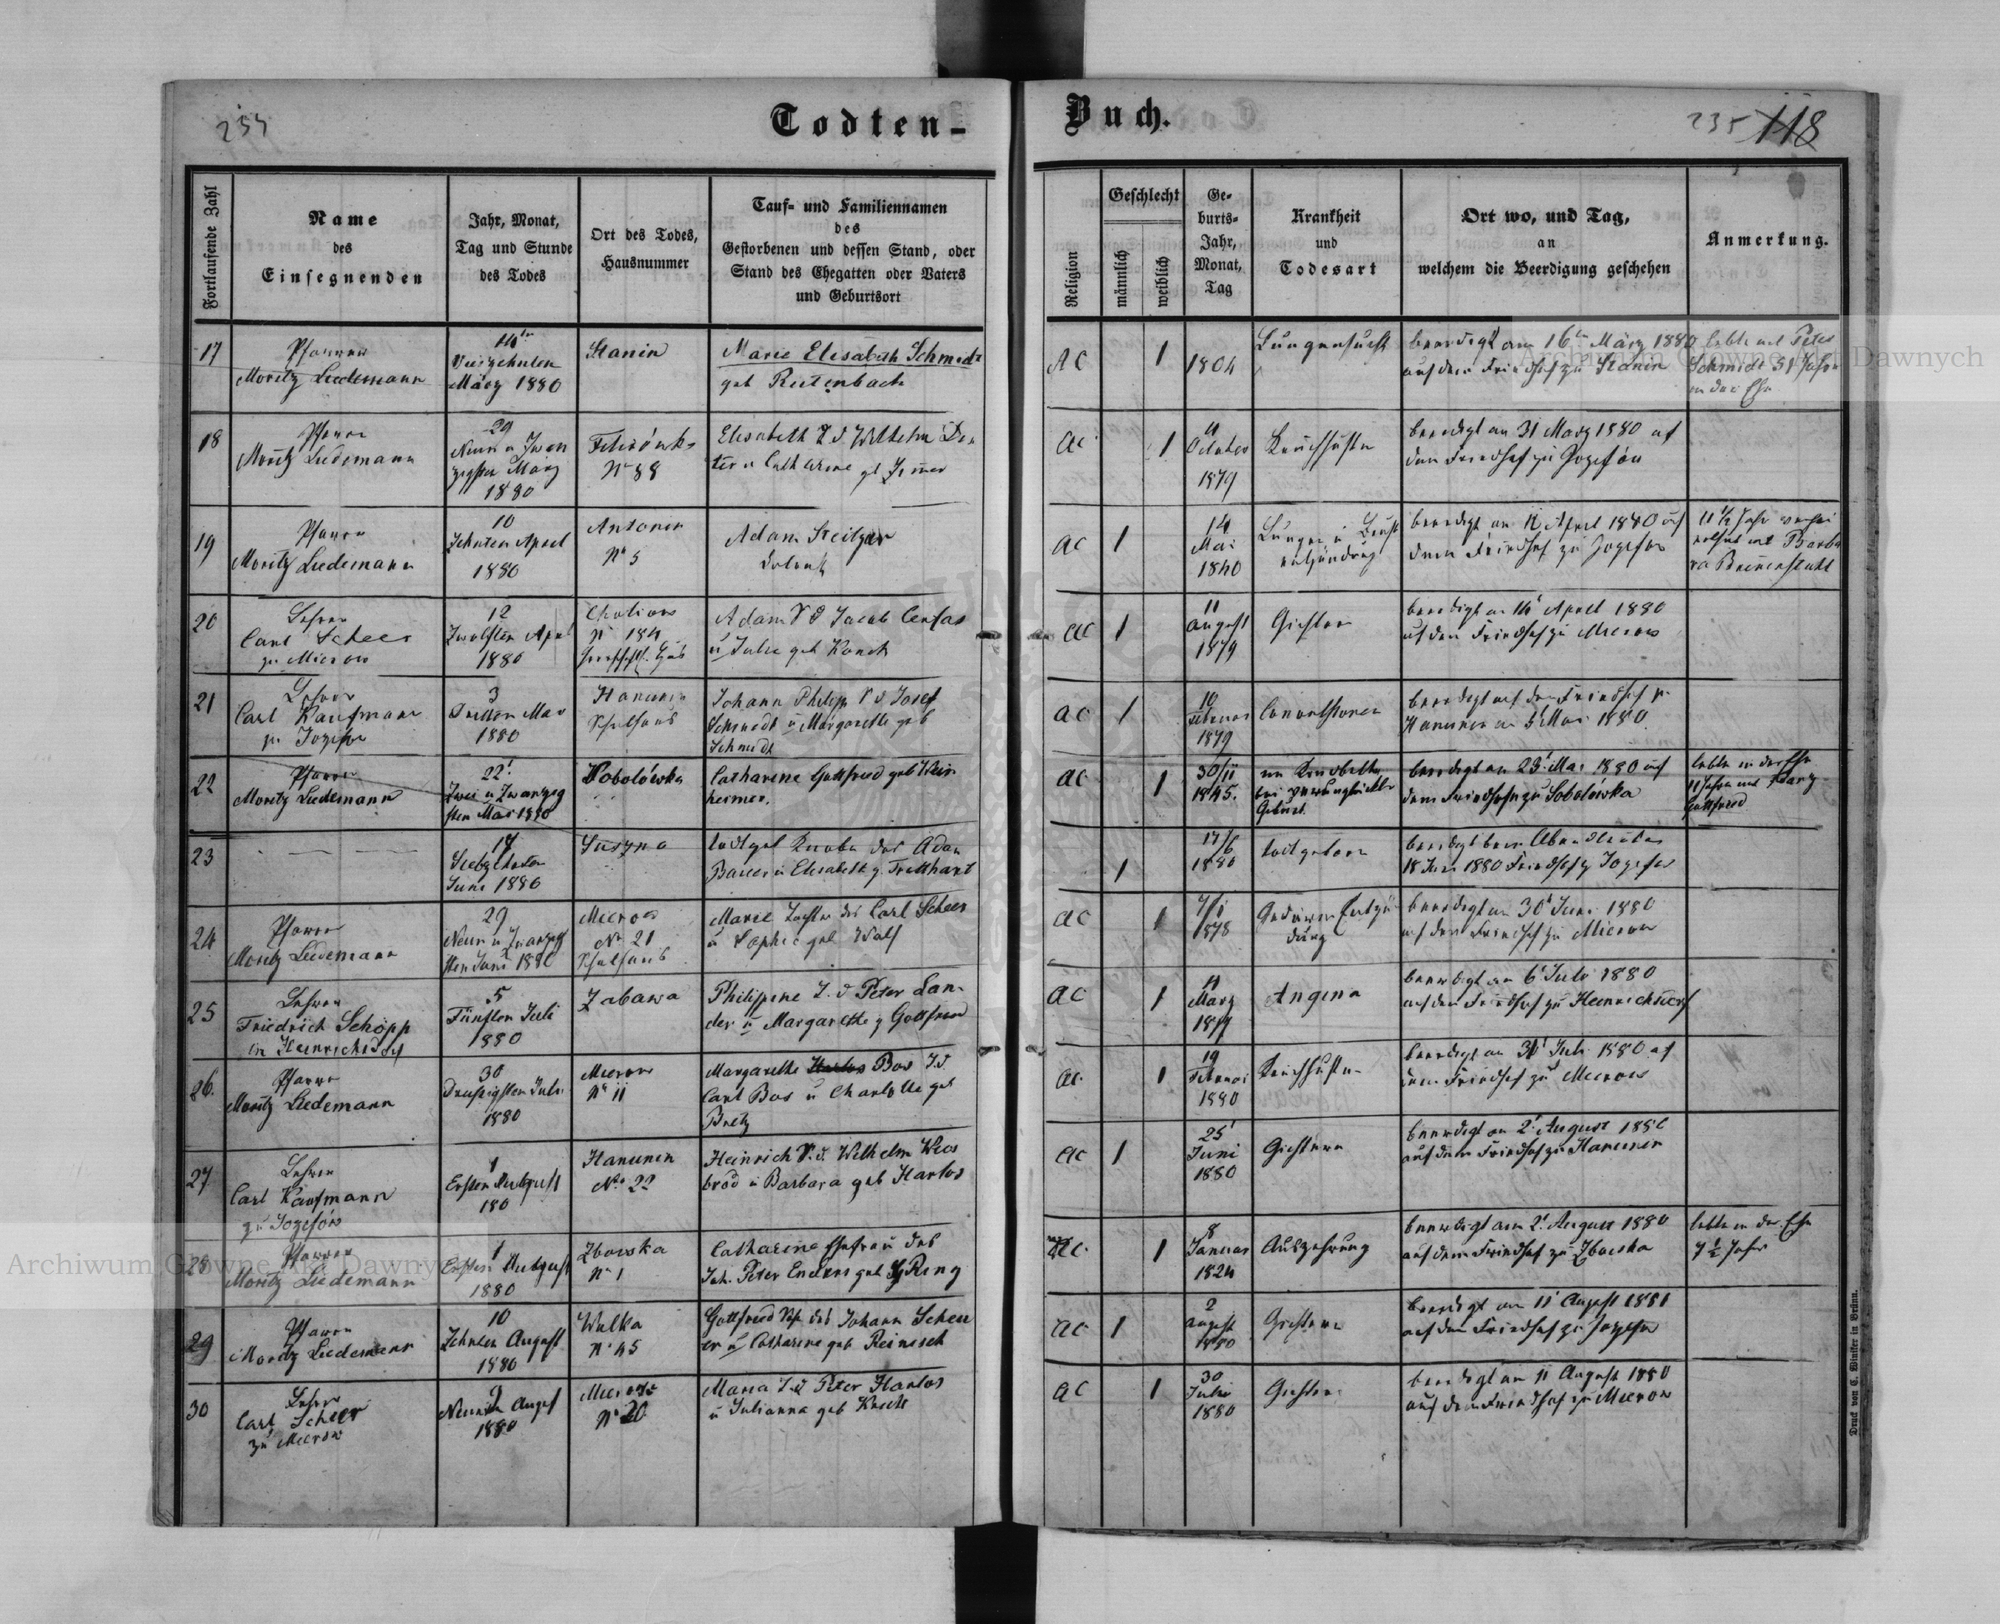 234
Todten-
Buch.
235 118
Fortlaufende Zahl
Name
des
Einsegnenden
Jahr, Monat,
Tag und Stunde
des Todes
Ort des Todes,
Hausnummer
Tauf- und Familiennamen
des
Gestorbenen und dessen Stand, oder
Stand des Ehegatten oder Vaters
und Geburtsort
Religion
Geschlecht
männlich
weiblich
Ge-
burts-
Jahr,
Monat,
Tag
Krankheit
und
Todesart
Ort wo, und Tag,
an
welchem die Beerdigung geschehen
Anmerkung.
17
Pfarrer
Moritz Luedemann
14
Vierzehnten
März 1880
Stanin
Marie Elisabeth Schmidt
geb
AC
1
1804
Lungensucht
beerdigt am 16 März 1880
auf dem Friedhof zu Stanin
lebte mit Peter
Schmidt 51 Jahre
in der Ehe
18
Pfarrer
Moritz Luedemann
29
Neun u Zwan
zigsten März
1880
N 88
Elisabeth T d Wilhelm
u Catharine
AC
1
October
1879
Keuchhusten
beerdigt am 31 März 1880 auf
dem Friedhof zu Josefów
19
Pfarrer
Moritz Luedemann
10
Zehnten April
1880
Antonin
N 5
Adam
AC 1
14
Mai
1840
Lungen
entzündung
beerdigt am 12 April 1880 auf
dem Friedhof zu Jozefow
11 1/2 Jahr
mit Barba
ra
20
Lehrer
Carl Scheer
zu Mierow
12
Zwölften April
1880
N 184
Adam S d Jacob
u Julie geb
AC 1
11
August
1879
Gichter
beerdigt am 14 April 1880
auf dem Friedhof zu Mierow
21
Lehrer
Carl Kaufmann
zu Jozefow
3
Dritten Mai
1880
Hanunin
Schulhaus
Johann Philipp S d Josef
Schmidt u Margarethe geb
Schmidt
AC 1
10
Februar
1879
Convulsionen
beerdigt auf dem Friedhof zu
Hanunin am 5 Mai 1880
22
Pfarrer
Moritz Luedemann
22
Zwei u Zwanzig
sten Mai 1880
Sobolówka
Catharine Gottfried geb Wein
heimer.
AC 1
30/11
1845.
im Kindbette
bei verunglückter
Geburt
beerdigt am 23 Mai 1880 auf
dem Friedhofe zu Sobolówka
lebte in der Ehe
11 Jahre mit Franz
Gottfried
23
17
Siebzehnten
Juni 1880
Suszno
todtgeb Knabe des Adam
Bauer u Elisabeth g.
1
17/6
1880
todtgeboren
18 Juni 1880 Friedhof z Jozefow
24
Pfarrer
Moritz Luedemann
29
Neun u Zwanzig
sten Juni 1880
Mierow
N 21
Schulhaus
Marie Tochter des Carl Scheer
u Sophie geb Wolf
AC 1
1878
Gedärm Entzün
dung
beerdigt am 30 Juni 1880
auf dem Friedhof zu Mierow
25
Lehrer
Friedrich Schöpp
in Heinrichsdorf
5
Fünften Juli
1880
Zabawa
Philippine T. d Peter Lan-
der u Margarethe g Gottfried
AC 1
März
1879
Angina
beerdigt am 6 Juli 1880
auf dem Friedhof zu Heinrichsdorf
26.
Pfarrer
Moritz Luedemann
30
Dreißigsten Juli
1880
Mierow
N 11
Margarethe Bos T. d.
Carl Bos u Charlotte geb
Bretz
AC 1
19
Februar
1880
Keuchhusten
beerdigt am 31 Juli 1880 auf
dem Friedhof zu Mierow
27
Lehrer
Carl Kaufmann
zu Jozefów
1
Ersten August
180
Hanunin
No 22
Heinrich S. d. Wilhelm
u Barbara geb Harlos
AC 1
25
Juni
1880
Gichtern
beerdigt am 2 August 1880
auf dem Friedhof zu Hanunin
28
Pfarrer
Moritz Luedemann
1
Ersten August
1880
Zboiska
N 1
Catharina Ehefrau des
Joh. Peter Enders geb Ring
AC. 1
8
Januar
1824
Auszehrung
beerdigt am 2 August 1880
auf dem Friedhof zu Zboiska
lebte in der Ehe
7 1/2 Jahr
29
Pfarrer
Moritz Luedemann
10
Zehnten August
1880
Wulka
N 45
Gottfried S des Johann Scheu
er u Catharine geb Reinisch
AC 1
2
August
1880
Gichtern
beerdigt am 11 August 1881
auf dem Friedhof zu Jozefow
30
Lehrer
Carl Scheer
zu Mierow
9
Neunten August
1880
Mierow
N 20
Maria T d Peter Harlos
u Julianna geb
AC 1
30
Juli
1880
Gichter
beerdigt am 11 August 1880
auf dem Friedhof zu Mierow
Druck von C. Winiker in Brünn.
Archiwum Główne Akt Dawnych
Archiwum Główne Akt Dawnych